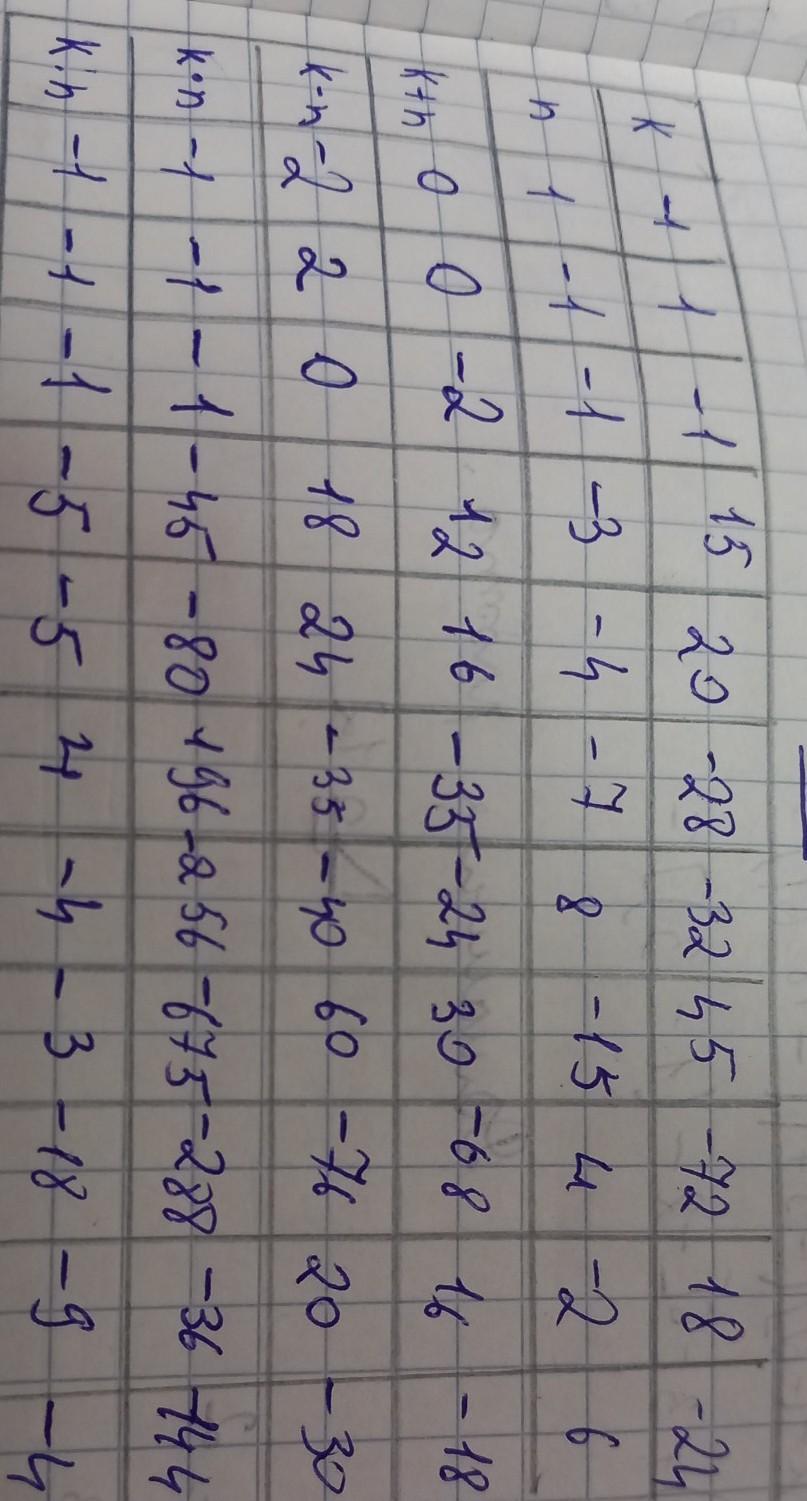 k -1 1 -1 15 20 -28 -32 45 -72 18 -24
n 1 -1 -1 -3 -4 -7 8 -15 4 -2 6
k+n 0 0 -2 12 16 -35 -24 30 -68 16 -18
k-n -2 2 0 18 24 -35 -40 60 -76 20 -30
k·n -1 -1 -1 -45 -80 196 -256 -675 -288 -36 -144
k:n -1 -1 -1 -5 -5 4 -4 -3 -18 -9 -4